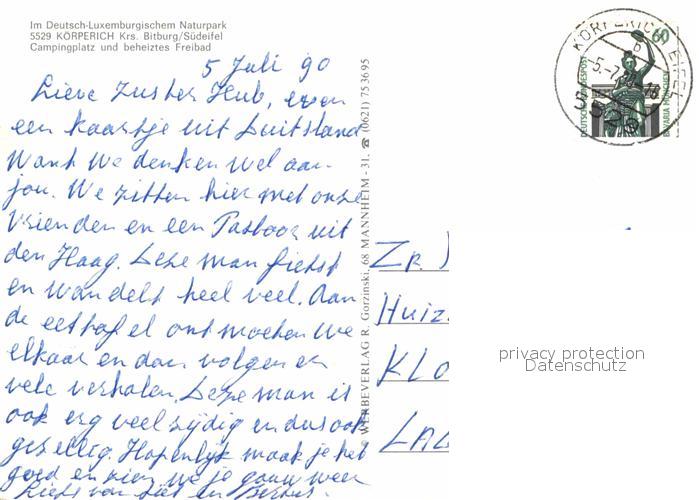 Im Deutsch-Luxemburgischem Naturpark
5529 KÖRPERICH Krs. Bitburg/Südeifel
Campingplatz und beheiztes Freibad
5 Juli 90
Lieve zuster Hub, even
een kaartje uit Duitsland
Want We denken wel aan
jou. We zitten hier met onze
vrienden en een Pastoor uit
den Haag. Deze man fietst
en wandelt heel veel. Aan
de eettafel ontmoeten we
elkaar en dan volgen er
vele verhalen. Deze man is
ook erg veelzijdig en dus ook
gezellig. Hopenlijk maak je het
goed en zien we je gauw weer
Liefs van en
WERBEVERLAG R. Gorzinski, 68 MANNHEIM - 31, ☎ (0621) 753695
KÖRPERICH EIFEL
b
-5.-7.90-18
5529
60
DEUTSCHE BUNDESPOST
BAVARIA MÜNCHEN
Zr.
Huiz.
KLO
LAL
privacy protection
Datenschutz